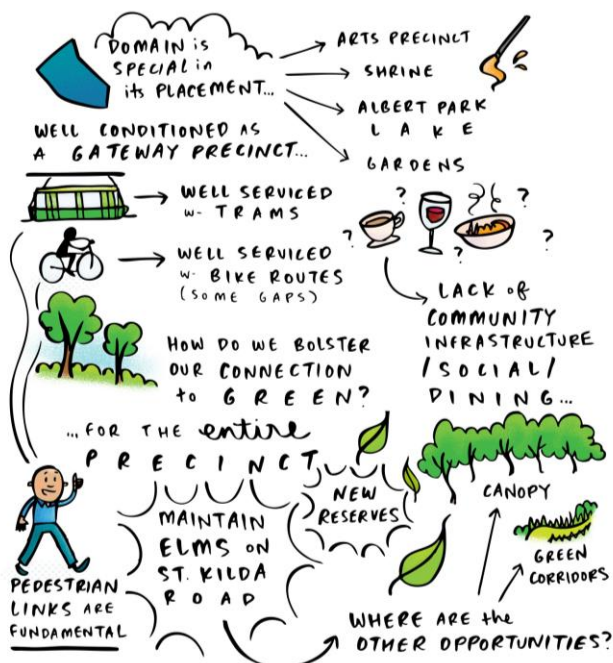 DOMAIN is
SPECIAL in
its PLACEMENT...
ARTS PRECINCT
SHRINE
ALBERT PARK
LAKE
GARDENS
WELL CONDITIONED AS
A GATEWAY PRECINCT...
WELL SERVICED
w- TRAMS
WELL SERVICED
w- BIKE ROUTES
(SOME GAPS)
? ? ? ? ?
LACK of
COMMUNITY
INFRASTRUCTURE
/SOCIAL/
DINING...
HOW DO WE BOLSTER
OUR CONNECTION
to GREEN?
...FOR THE entire
PRECINCT
PEDESTRIAN
LINKS ARE
FUNDAMENTAL
MAINTAIN
ELMS ON
ST. KILDA
ROAD
NEW
RESERVES
CANOPY
GREEN
CORRIDORS
WHERE ARE the
OTHER OPPORTUNITIES?